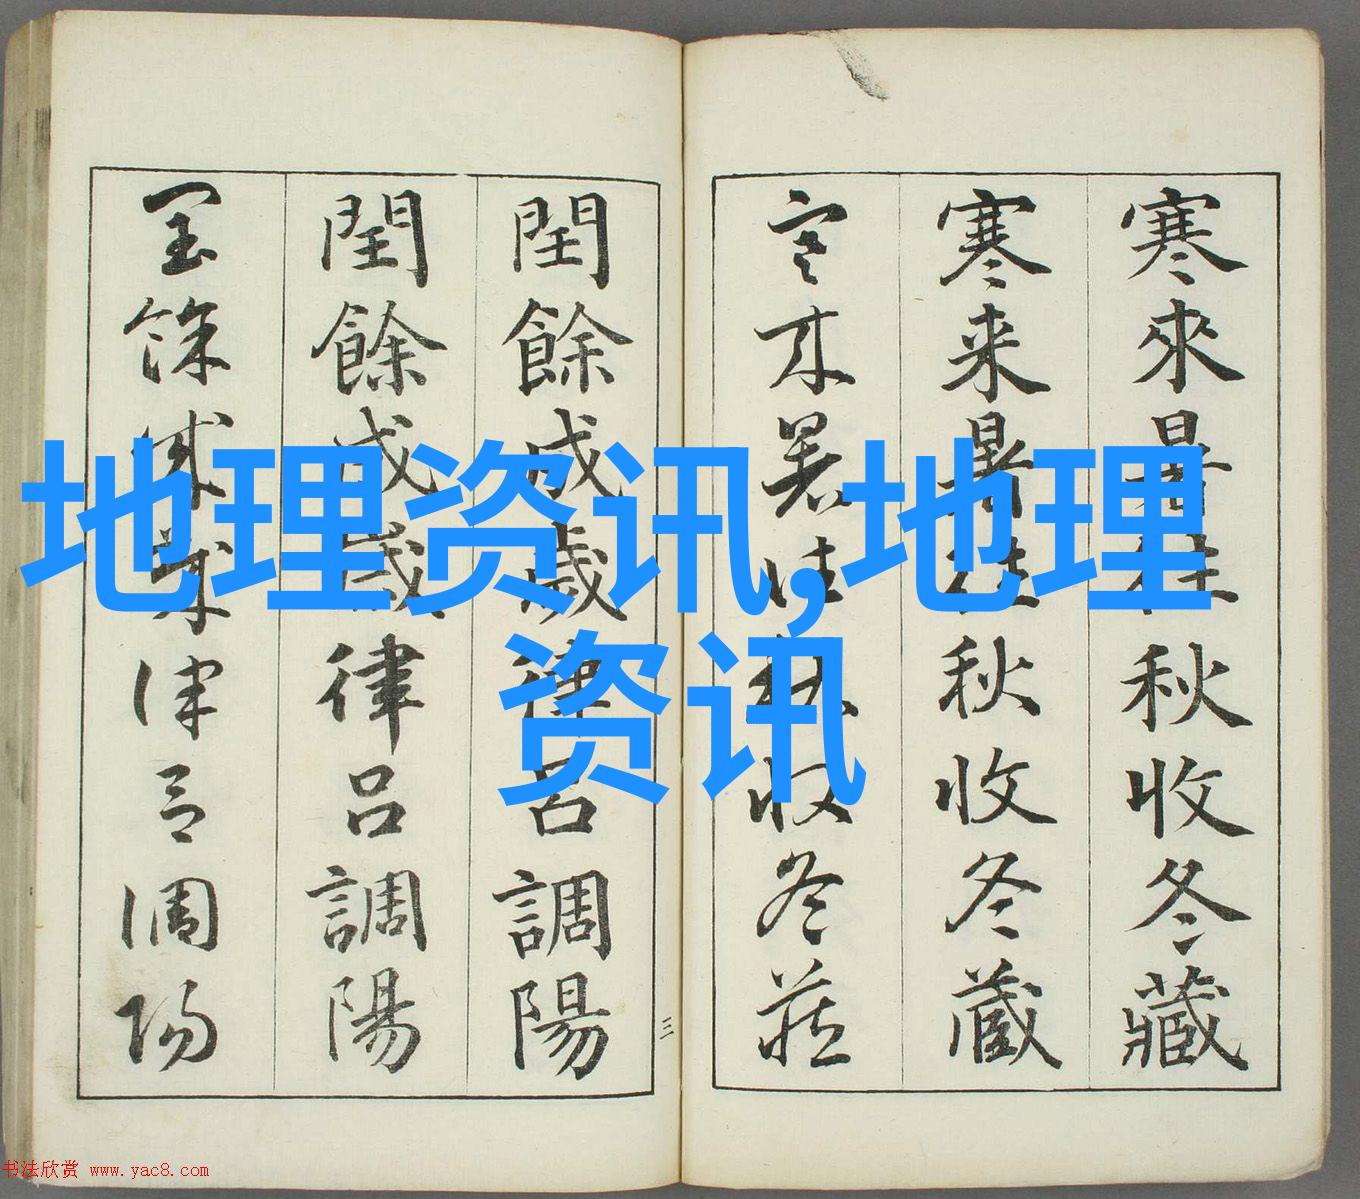 地理资讯,地理
资讯
寒來暑往秋收冬藏
寒来暑往秋收冬蔵
寒来暑往秋收冬藏
三
閏餘成歲律呂調陽
閏餘成歲律呂調陽
閏餘成歲律呂調陽
书法欣赏 www.yac8.com